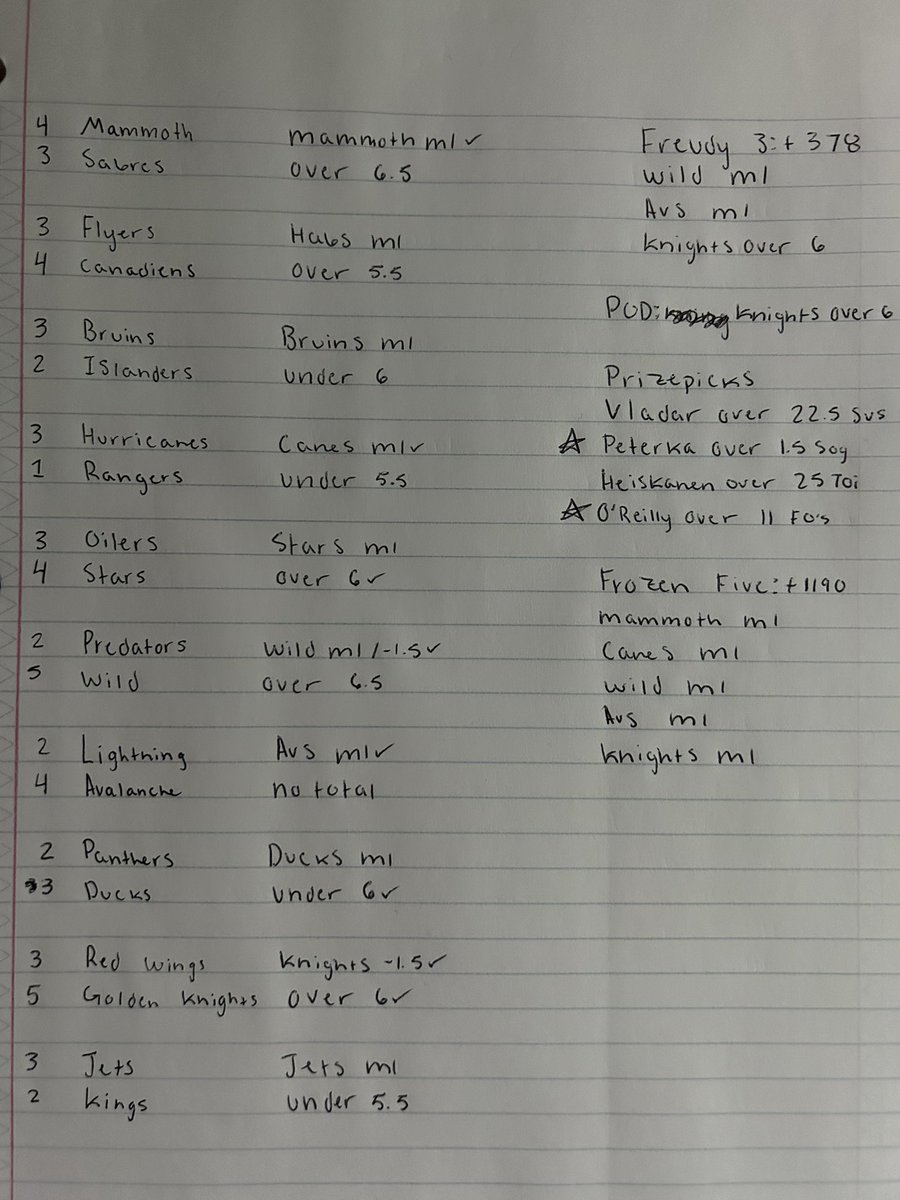 4 Mammoth mammoth ml ✓
3 Sabres over 6.5
3 Flyers Habs ml
4 Canadiens over 5.5
3 Bruins Bruins ml
2 Islanders under 6
3 Hurricanes Canes ml ✓
1 Rangers under 5.5
3 Oilers Stars ml
4 Stars over 6 ✓
2 Predators Wild ml /-1.5 ✓
5 Wild over 6.5
2 Lightning Avs ml ✓
4 Avalanche no total
2 Panthers Ducks ml
3 Ducks under 6 ✓
3 Red wings Knights -1.5 ✓
5 Golden Knights over 6 ✓
3 Jets Jets ml
2 Kings under 5.5
Freudy 3:+378
wild ml
Avs ml
Knights over 6
POD: Knights over 6
Prizepicks
Vladar over 22.5 svs
☆ Peterka over 1.5 Sog
Heiskanen over 25 Toi
☆ O'Reilly over 11 FO's
Frozen Five: +1190
mammoth ml
Canes ml
wild ml
Avs ml
Knights ml